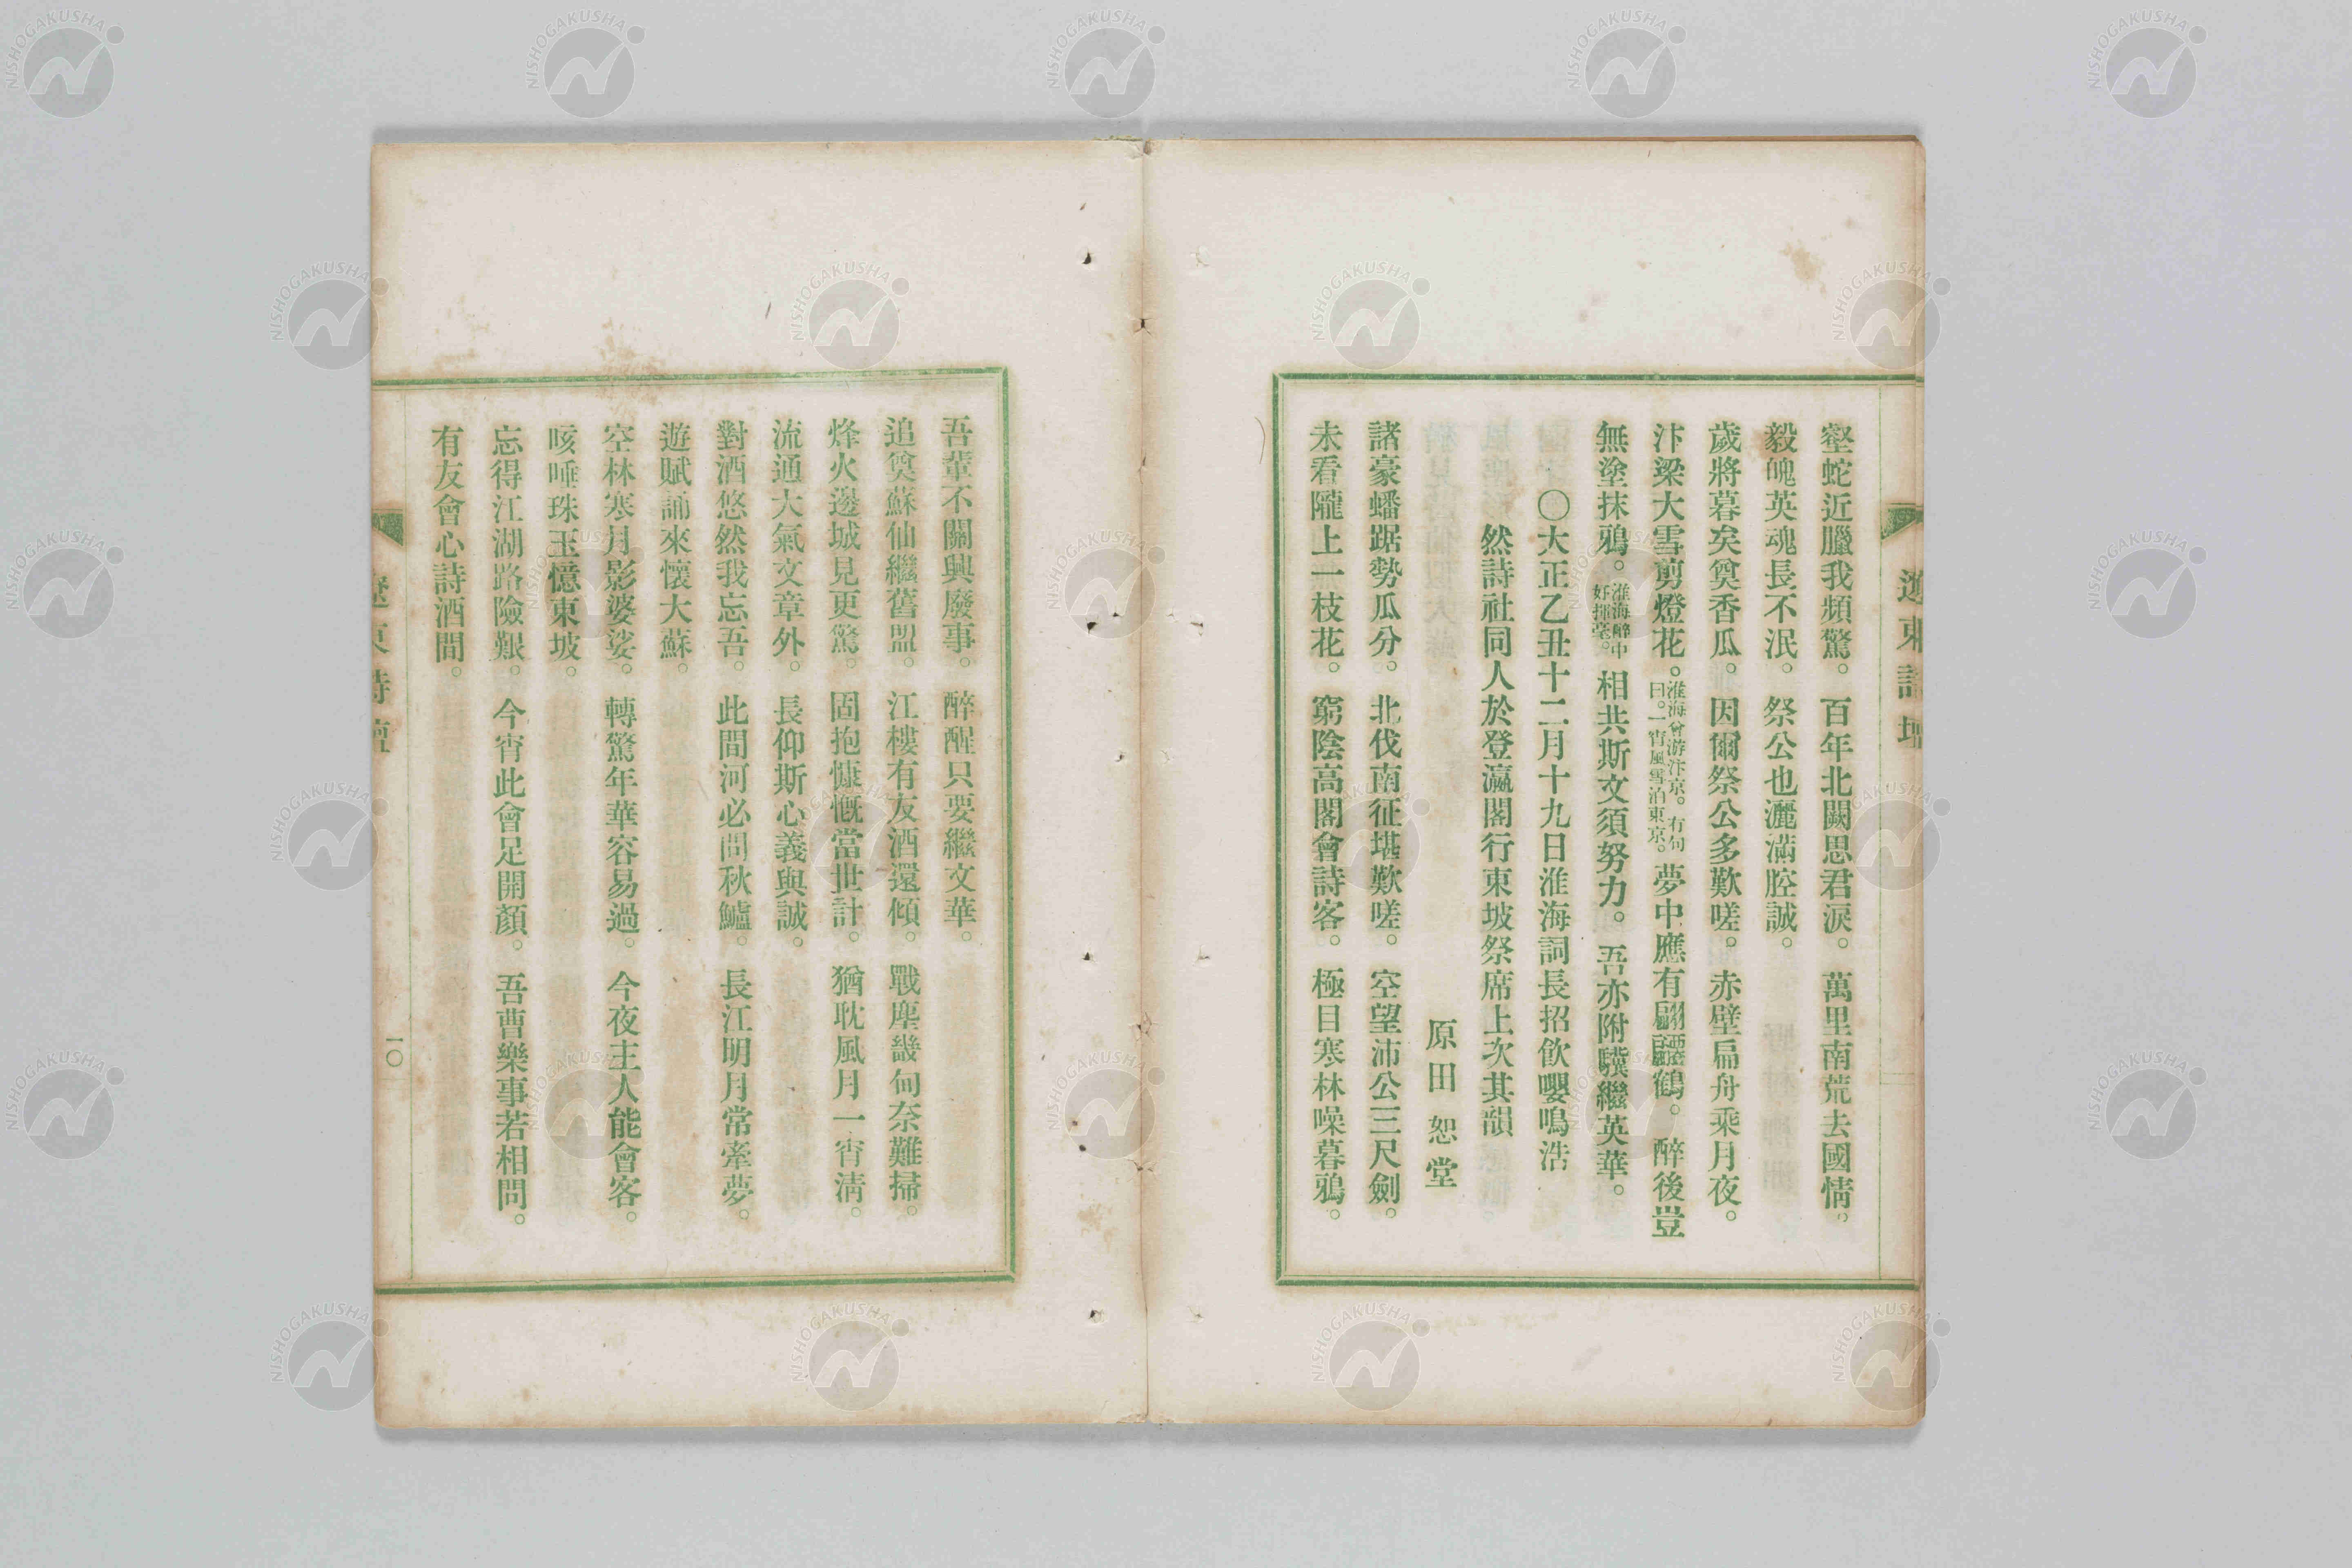 壑蛇近臘我頻驚。百年北闕思君淚。萬里南荒去國情。
毅魄英魂長不泯。祭公也灑滿腔誠。
歲將暮矣奠香瓜。因爾祭公多歎嗟。赤壁扁舟乘月夜。
汴梁大雪剪燈花。淮海曾游汴京。有句曰。一宵風雪泊東京。夢中應有翩躚鶴。醉後豈
無塗抹鴉。淮海醉中好揮毫。相共斯文須努力。吾亦附驥繼英華。
〇大正乙丑十二月十九日淮海詞長招飲嚶鳴浩
然詩社同人於登瀛閣行東坡祭席上次其韻
原田恕堂
諸豪蟠踞勢瓜分。北伐南征堪歎嗟。空望沛公三尺劍。
未看隴上一枝花。窮陰高閣會詩客。極目寒林噪暮鴉。
遼東詩壇
吾輩不關興廢事。醉醒只要繼文華。
追奠蘇仙繼舊盟。江樓有友酒還傾。戰塵畿甸奈難掃。
烽火邊城見更驚。固抱慷慨當世計。猶耽風月一宵淸。
流通大氣文章外。長仰斯心義與誠。
對酒悠然我忘吾。此間河必問秋鱸。長江明月常牽夢。
遊賦誦來懷大蘇。
空林寒月影婆娑。轉驚年華容易過。今夜主人能會客。
咳唾珠玉憶東坡。
忘得江湖路險艱。今宵此會足開顏。吾曹樂事若相問。
有友會心詩酒間。
遼東詩壇
一〇
NISHOGAKUSHA